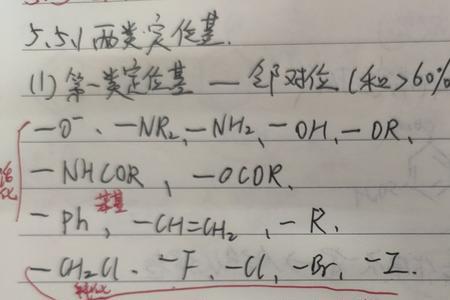 5.5.1 两类定位基.
(1) 第一类定位基 — 邻对位 (和>60%
—O⁻、—NR₂、—NH₂、—OH、—OR、
活化
—NHCOR、—OCOR、
—Ph, 苯基 —CH=CH₂, —R、
—CH₂Cl、—F、—Cl、—Br、—I.
钝化